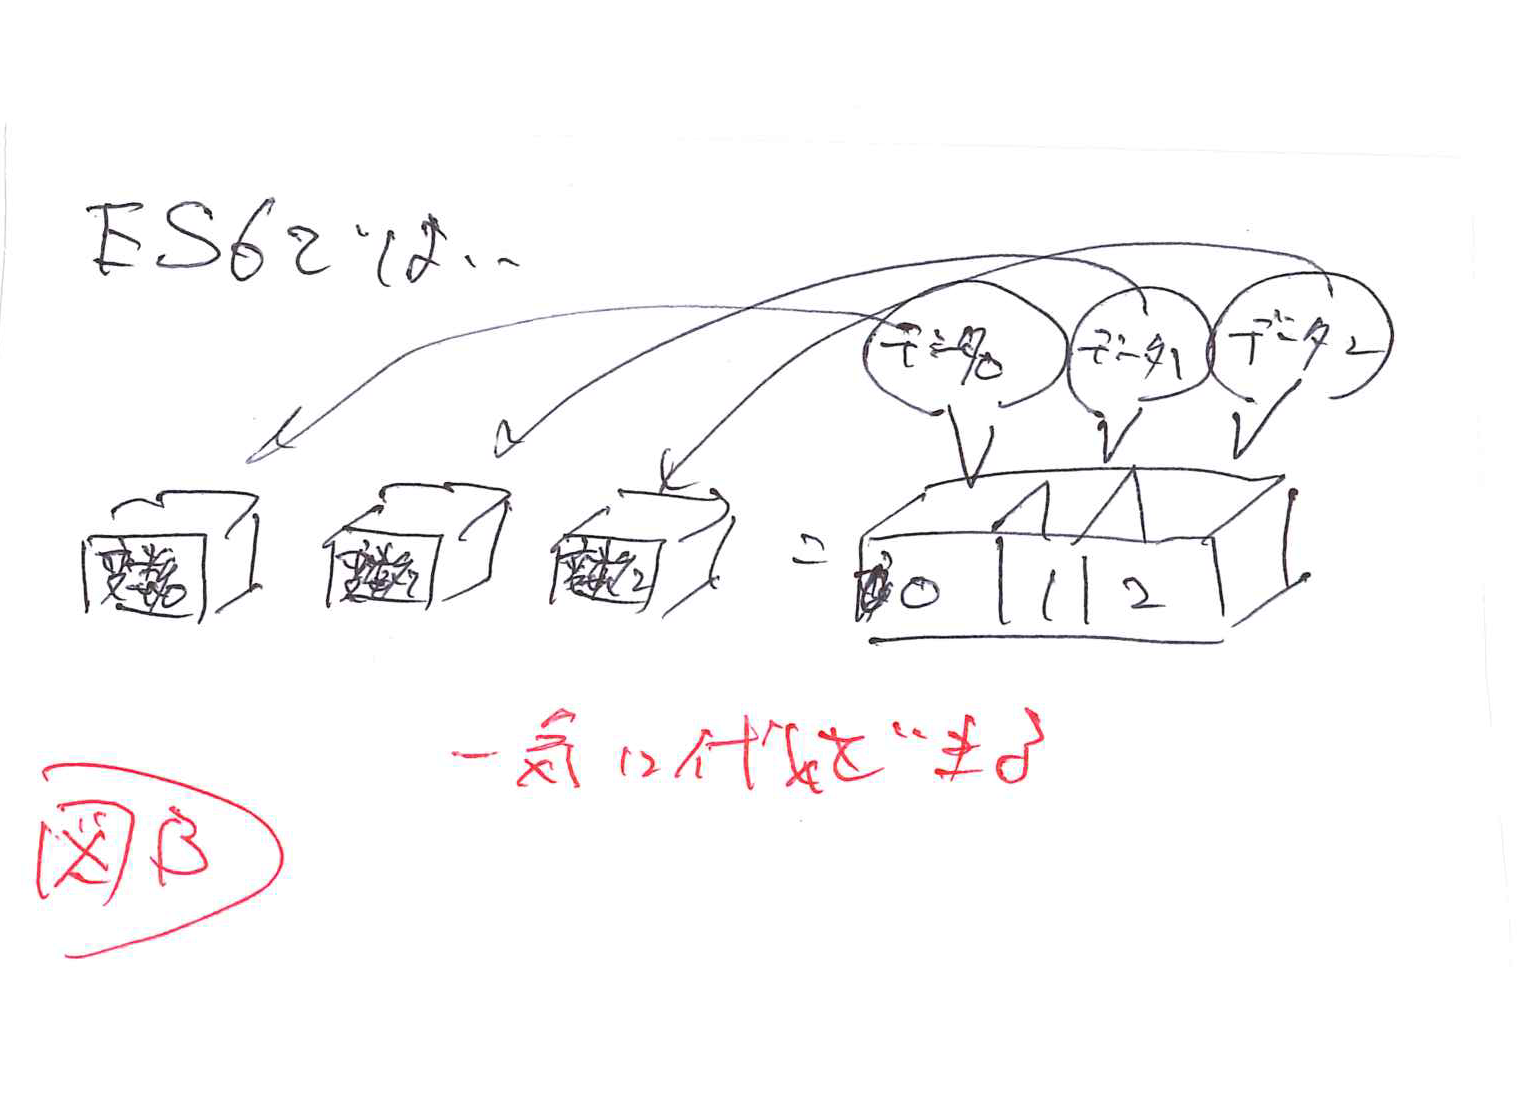 ES6では...
データ0 データ1 データ2
変数0 変数1 変数2 = 0 1 2
一気に代入できます
図B